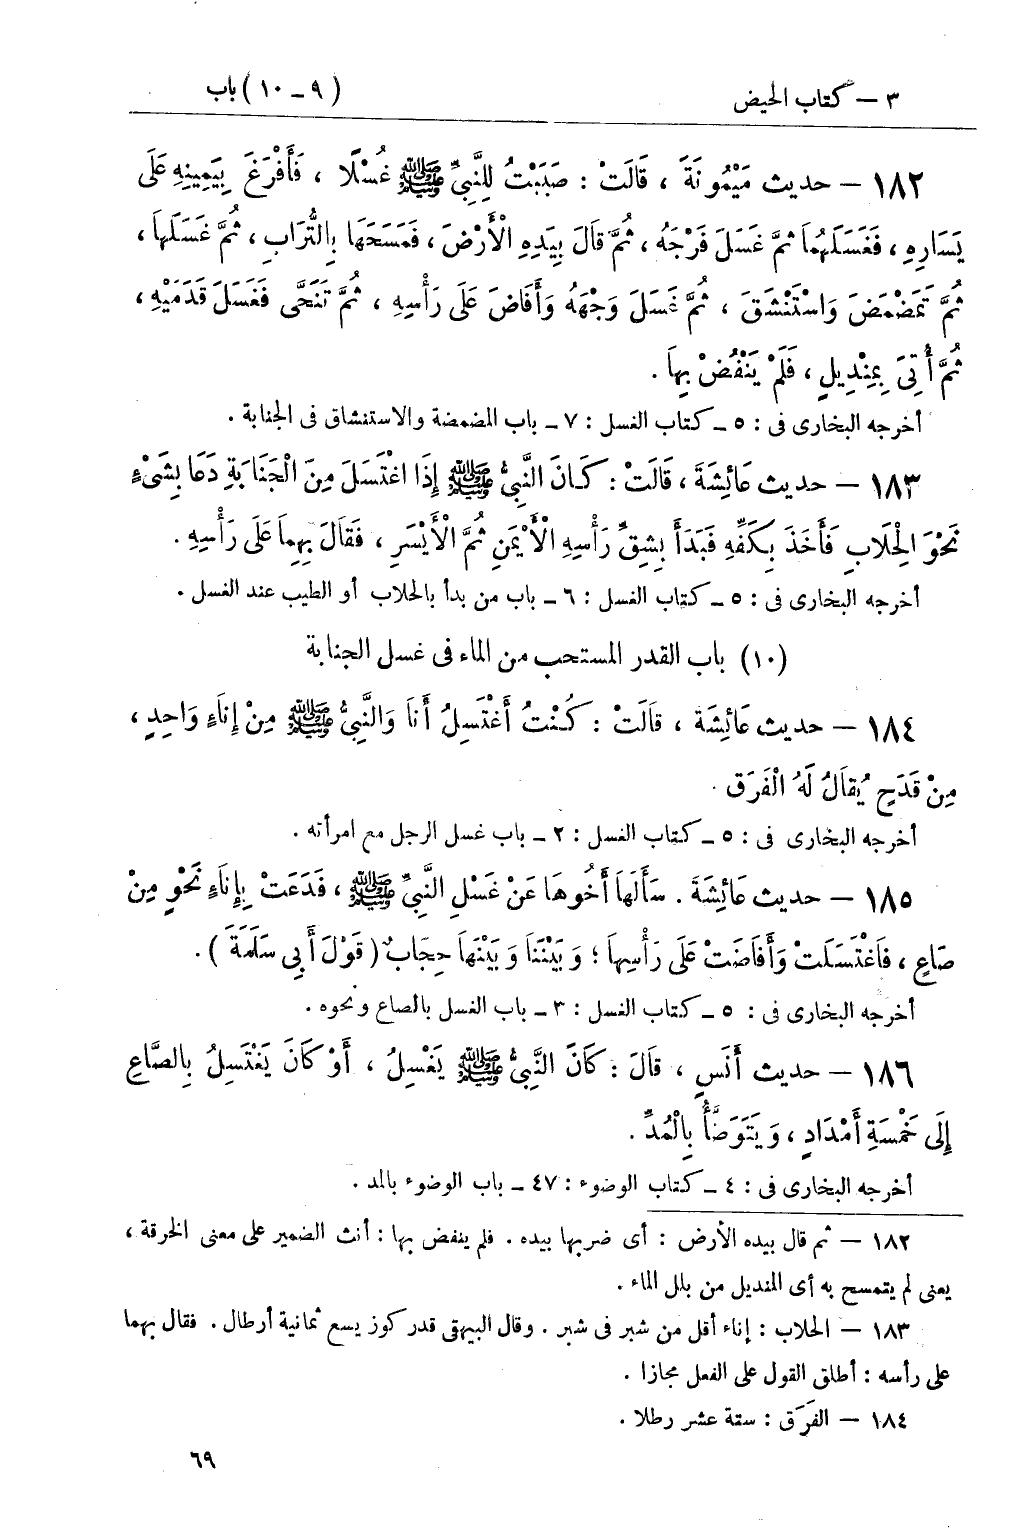 ٣ – كتاب الحيض
(٩ – ١٠) باب
١٨٢ – حديث مَيْمُونَةَ ، قَالَتْ : صَبَبْتُ لِلنَّبِيِّ ﷺ غُسْلًا ، فَأَفْرَغَ بِيَمِينِهِ عَلَى
يَسَارِهِ ، فَغَسَلَهُمَا ثُمَّ غَسَلَ فَرْجَهُ ، ثُمَّ قَالَ بِيَدِهِ الْأَرْضَ ، فَمَسَحَهَا بِالتُّرَابِ ، ثُمَّ غَسَلَهَا ،
ثُمَّ تَمَضْمَضَ وَاسْتَنْشَقَ ، ثُمَّ غَسَلَ وَجْهَهُ وَأَفَاضَ عَلَى رَأْسِهِ ، ثُمَّ تَنَحَّى فَغَسَلَ قَدَمَيْهِ ،
ثُمَّ أُتِىَ بِمِنْدِيلٍ ، فَلَمْ يَنْفُضْ بِهَا .
أخرجه البخارى فى : ٥ – كتاب الغسل : ٧ – باب المضمضة والاستنشاق فى الجنابة .
١٨٣ – حديث عَائِشَةَ ، قَالَتْ : كَانَ النَّبِىُّ ﷺ إِذَا اغْتَسَلَ مِنَ الْجَنَابَةِ دَعَا بِشَىْءٍ
نَحْوَ الْحِلَابِ فَأَخَذَ بِكَفِّهِ فَبَدَأَ بِشِقِّ رَأْسِهِ الْأَيْمَنِ ثُمَّ الْأَيْسَرِ ، فَقَالَ بِهِمَا عَلَى رَأْسِهِ .
أخرجه البخارى فى : ٥ – كتاب الغسل : ٦ – باب من بدأ بالحلاب أو الطيب عند الغسل .
(١٠) باب القدر المستحب من الماء فى غسل الجنابة
١٨٤ – حديث عَائِشَةَ ، قَالَتْ : كُنْتُ أَغْتَسِلُ أَنَا وَالنَّبِىُّ ﷺ مِنْ إِنَاءٍ وَاحِدٍ ،
مِنْ قَدَحٍ يُقَالُ لَهُ الْفَرَق .
أخرجه البخارى فى : ٥ – كتاب الغسل : ٢ – باب غسل الرجل مع امرأته .
١٨٥ – حديث عَائِشَةَ . سَأَلَهَا أَخُوهَا عَنْ غَسْلِ النَّبِىِّ ﷺ ، فَدَعَتْ بِإِنَاءٍ نَحْوٍ مِنْ
صَاعٍ ، فَاغْتَسَلَتْ وَأَفَاضَتْ عَلَى رَأْسِهَا ؛ وَبَيْنَنَا وَبَيْنَهَا حِجَابٌ ( قَوْلُ أَبِى سَلَمَةَ ) .
أخرجه البخارى فى : ٥ – كتاب الغسل : ٣ – باب الغسل بالصاع ونحوه .
١٨٦ – حديث أَنَسٍ ، قَالَ : كَانَ النَّبِىُّ ﷺ يَغْسِلُ ، أَوْ كَانَ يَغْتَسِلُ بِالصَّاعِ
إِلَى خَمْسَةِ أَمْدَادٍ ، وَيَتَوَضَّأُ بِالْمُدِّ .
أخرجه البخارى فى : ٤ – كتاب الوضوء : ٤٧ – باب الوضوء بالمد .
١٨٢ – ثم قال بيده الأرض : أى ضربها بيده . فلم ينفض بها : أنث الضمير على معنى الخرقة ،
يعنى لم يتمسح به أى المنديل من بلل الماء .
١٨٣ – الحلاب : إناء أقل من شبر فى شبر . وقال البيهقى قدر كوز يسع ثمانية أرطال . فقال بهما
على رأسه : أطلق القول على الفعل مجازا .
١٨٤ – الفَرَق : ستة عشر رطلا .
٦٩